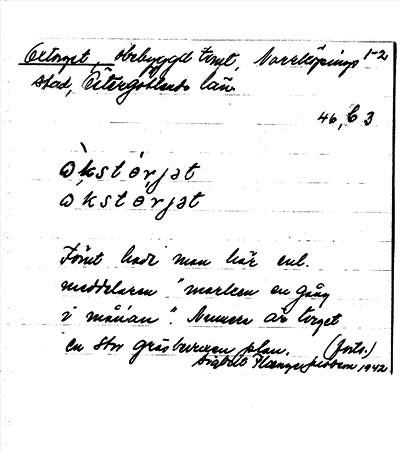 Oxtorget, obebyggd tomt, Norrköpings 1-2
stad, Östergötlands län.
46, C 3
ò̩kstórjet
ò̩kstórjet
Förut hade man här enl.
meddelaren "marken en gång
i månan". Numera är torget
en stor gräsbevuxen plan. (forts.)
1942